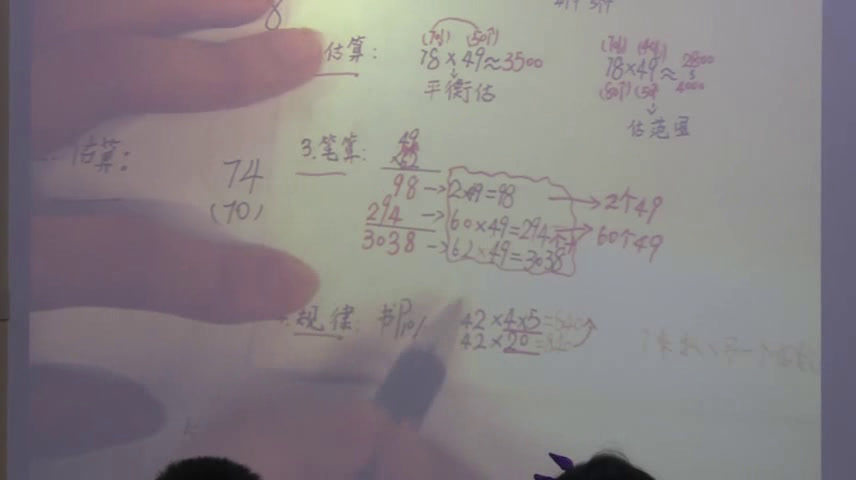 8
估算：
(70) (50)
78×49≈3500
平衡估
(70) (40)
78×49≈2800
(80) (50) 4000
估范围
估算：
74
(70)
3.笔算：
49
×62
98→2×49=98→2个49
294→60×49=294个十→60个49
3038→62×49=3038
规律：书P101
42×4×5=840
42×20=840